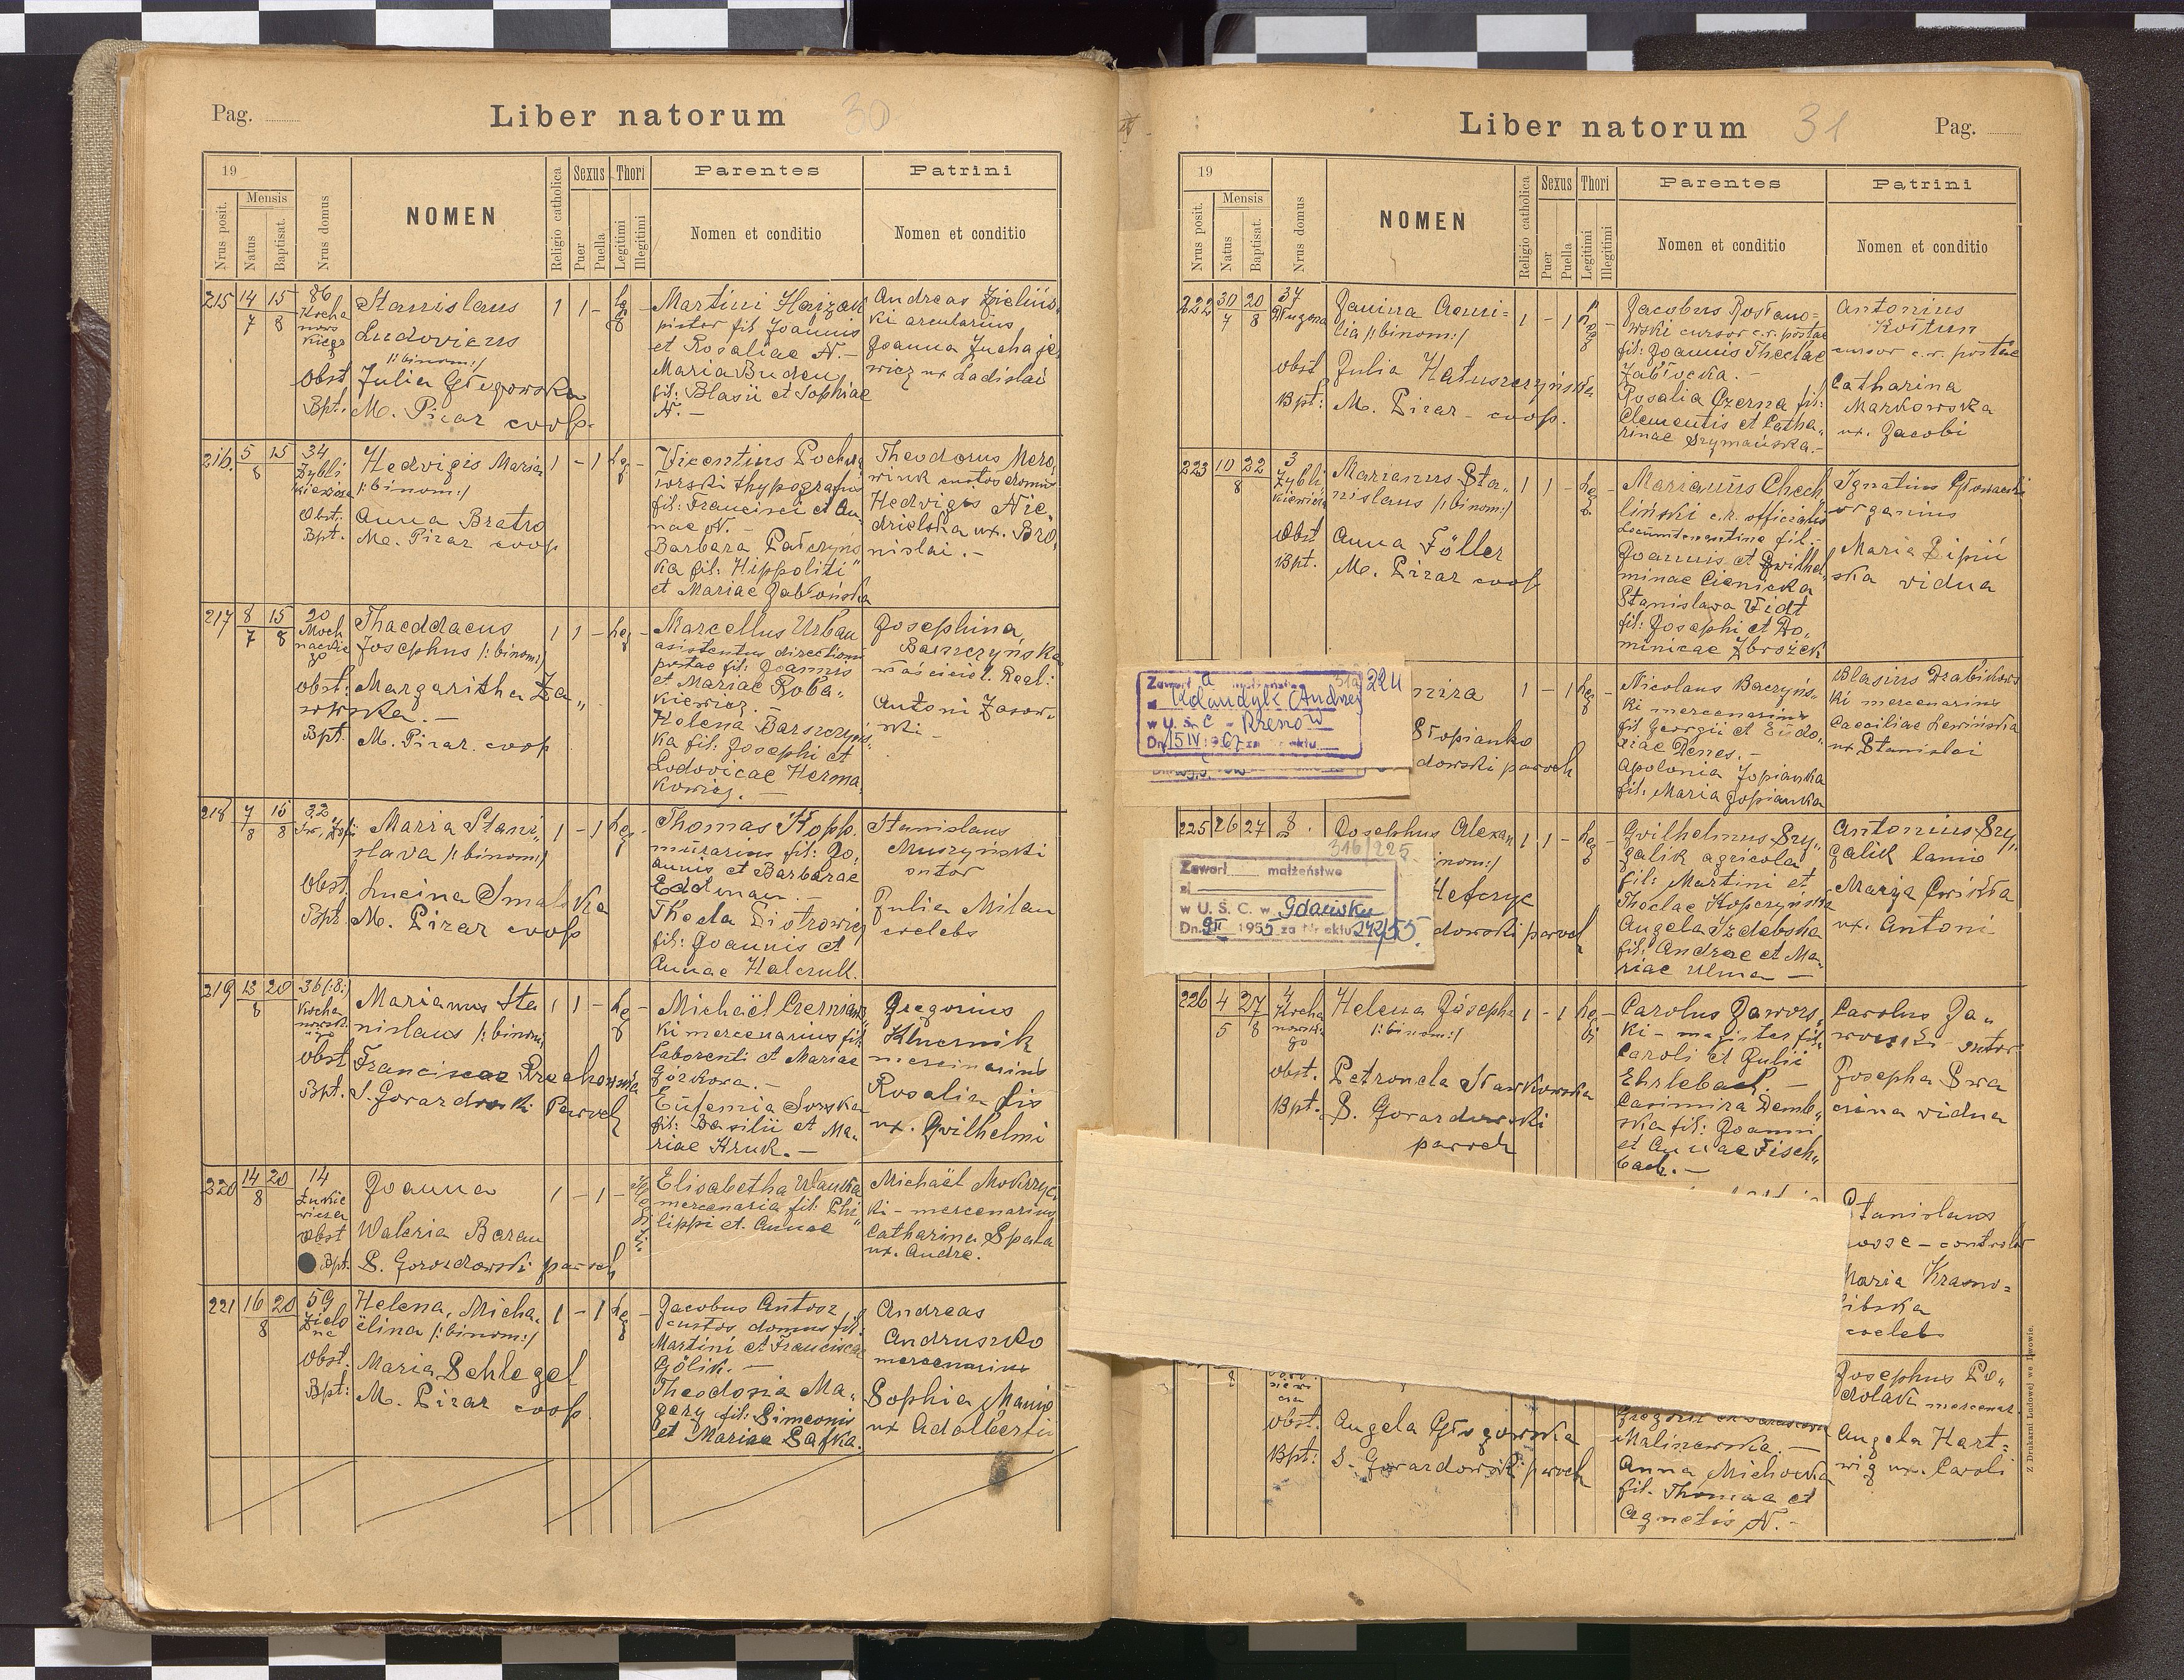 Pag.
Liber natorum
30
19
Mensis
Nrus posit.
Natus
Baptisat.
Nrus domus
NOMEN
Religio catholica
Sexus
Puer
Puella
Thori
Legitimi
Illegitimi
Parentes
Nomen et conditio
Patrini
Nomen et conditio
215 14/7 15/8 86
Kocha
nows
kiego
Stanislaus
Ludovicus
/:binom:/
Obst Julia Głogowska
Bpt. M. Pirar coop.
1 1 - Leg -
Martini
pistor fil Joannis
et Rosaliae N. -
Maria Buden
fil: Blasii et Sophiae
N. -
Andreas Zielińs
ki arcularius
Joanna
wicz ux Ladislai
216. 5 15/8 34
Zybli
kiewicza
Hedvigis Maria
/:binom:/
Obst: Anna Bratro
Bpt. M. Pirar coop
1 - 1 Leg -
Vicentius
thypografus
fil: Francisci et An
nae N. -
Barbara Patrzyńs
ka fil: Hippoliti
et Mariae Jabłońska
Theodorus Mero
wink custos domus
Hedvigis Nie
dzielska ux. Bro
nislai. -
217 8/7 15/8 20
Moch
nackie
go
Thaeddaeus
Josephus /:binom:/
obst: Margaritha Za„
Bpt. M. Pirar. coop
1 1 - Leg -
Marcellus Urban
asistentus directioni
postae fil: Joannis
et Mariae Roba„
kiewicz. -
Helena Barszczyńs
ka fil: Josephi et
Lodovicae Herma
kowicz. -
Josephina
Barszczyńska
właściciel. Real:
Antoni
218 7/8 15/8 32
Św. Zofi
Maria Stani„
slava /:binom:/
Obst. Lucina Smalska
Bpt. M. Pirar coop
1 - 1 Leg -
Thomas Kopp.
murarius fil: Jo„
annis et Barbarae
Thecla Piotrowicz
fil: Joannis et
Annae
Stanislaus
Muszyński
sutor
Julia Milan
coelebs
219 13 20/8 36 (:8:)
Kocha
nowski
ego
Marianus Sta
nislaus /:binom:/
obst Francisca
Bpt. S. Gorazdowski Paroch
1 1 - Leg
Michaël Czerniaws
ki mercenarius fil.
Laborenti et Mariae
Górkowa. -
Eufemia
fil: Basilii et Ma„
riae Kruk. -
Gregorius
Klucznik
mercinarius
Rosalia Lis
ux. Gvilhelmi
220 14 20/8 14
Łukie
wicza
Joanna
obst Waleria Baran
Bpt. S. Gorozdowski paroch
1 - 1 -
Elisabetha
mercenaria fil: Phi
lippi et. Annae
Michaël Mokrzyc
ki - mercenarius
Catharina Spala
ux. Andre.
221 16 20/8 59
Zielo
na
Helena, Micha„
ëlina /:binom:/
Obst. Maria Schlegel
Bpt: M. Pirar coop
1 - 1 Leg -
Jacobus Antosz
custos domus fil:
Martini et Francisca
Gölik. -
Theodosia Ma„
zery fil: Simeonis
et Mariae Safka.
Andreas
Andruszko
mercenarius
Sophia
ux Adalbertii
Liber natorum
31
Pag.
19
Mensis
Nrus posit.
Natus
Baptisat.
Nrus domus
NOMEN
Religio catholica
Sexus
Puer
Puella
Thori
Legitimi
Illegitimi
Parentes
Nomen et conditio
Patrini
Nomen et conditio
222 30/7 20/8 37
Długosza
Janina
lia /:binom:/
obst Julia Hatuszczyńska
Bpt: M. Pirar - coop.
1 - 1 Leg -
Jacobus Rostano=
wski cursor c.r. postae
fil: Joannis Theclae
Zabłocka. -
Rosalia Czerna fil:
Clementis et Catha„
rinae Szymańska. -
Antonius
Kostun
cursor c.r. postae
Catharina
Markowska
ux. Jacobi
223 10 22/8 3
Zybli
kiewicza
Marianus Sta„
nislaus /:binom:/
Obst Anna Föller
Bpt. M. Pirar coop
1 1 - Leg -
Marianus Chech
liński c.k. officialis
fil.-
Joannis et Gwilhel
minae Cienicka
Stanislava Vidt
fil: Josephi et Do„
minicae Zbrożek
Ignatius Głowacki
organius
Maria Lipiń
ska vidua
Zawarł a małżeństwo
314/224
z Udandyk (Andrzej
w U.S.C - Rzeszów
Dn. 15 IV 1967 za nr aktu
nira
Stopianko
dowski paroch
1 - 1 Leg -
Nicolaus Baczyńs„
ki mercenarius
fil Georgii et Eudo„
xiae Denes. -
Apolonia Zopianka
fil: Maria Zopianka
Blasius Drabikows
ki mercenarius
Caeciliae Lewińska
ux Stanislai
225 26 27/8 8
Josephus Alexan
inom:/
dowski paroch
1 1 - Leg -
Gvilhelmus Szy„
galik agricola
fil: Martini et
Theclae Kopczyńska
Angela Izdebska
fil: Andrae et Ma„
riae Ulma -
Antonius Szy„
galik lanio
Marya Ćwikła
ux. Antoni
316/225
Zawarł małżeństwo
z
w U. S. C. w Gdańsku
Dn. 9 II 1955 za Nr aktu 242/55.
226 4/5 27/8 4
Kocha
nowskie
go
Helena Joseph
/:binom:/
obst. Petronela Sławkowska
Bpt. S. Gorazdowski
paroch
1 - 1 Leg -
Carolus Jawors„
ki - magister fil.
Caroli et Julii
Ehrlebach. -
Casimira Demb„
ska fil: Joanni
et Annae Fisch„
bach. -
Carolus Ja„
worski sutor
Josepha Swa
crina vidua
Stanislaus
- controlor
Maria Krasno=
ibska
coelebs
8
obst. Angela Głogowska
Bpt: S. Gorazdowski paroch
Malinowska. -
Anna Michowka
fil. Thomaa et
Agnetis N. -
Josephus Po„
dolak mercenar.
Angela Hart=
wig ux. Caroli
Z Drukarni Ludowej we Lwowie.